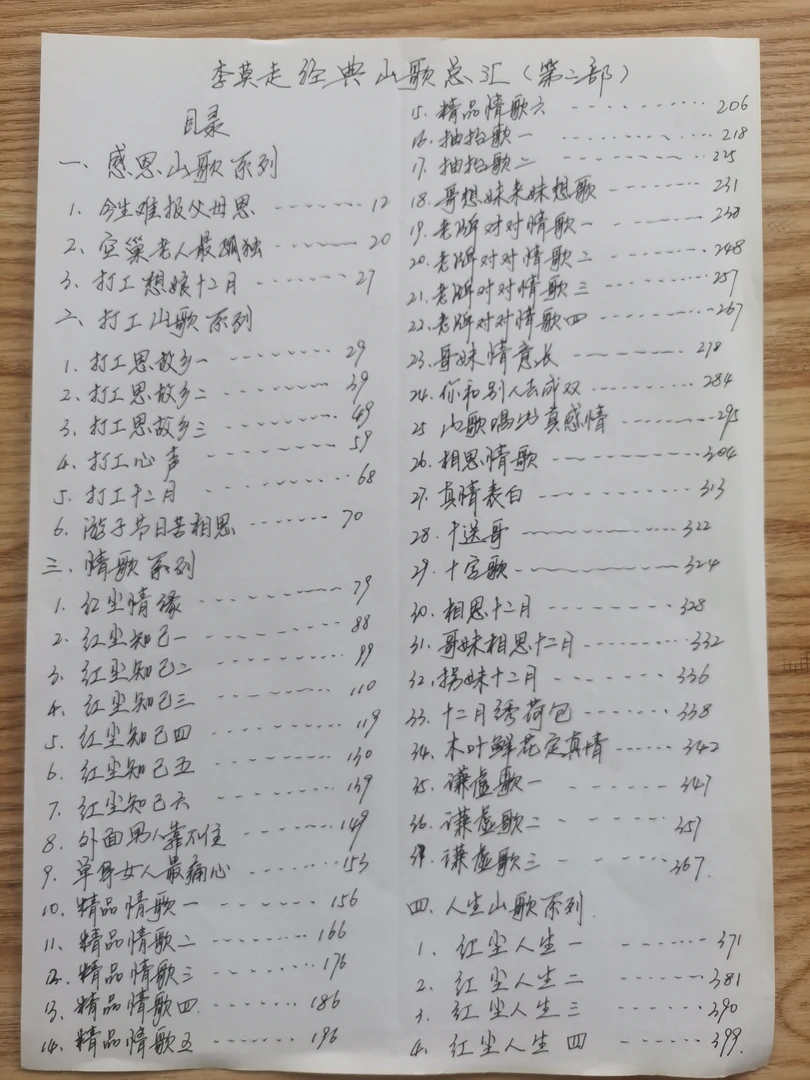 李莫走经典山歌总汇（第二部）
目录
一、感恩山歌系列
1. 今生难报父母恩 ------- 12
2. 空巢老人最孤独 ------- 20
3. 打工想娘十二月 ------- 27
二、打工山歌系列
1. 打工思故乡一 ------- 29
2. 打工思故乡二 ------- 39
3. 打工思故乡三 ------- 49
4. 打工心声 ------- 59
5. 打工十二月 ------- 68
6. 游子节日苦相思 ------- 70
三、情歌系列
1. 红尘情缘 ------- 79
2. 红尘知己一 ------- 88
3. 红尘知己二 ------- 99
4. 红尘知己三 ------- 110
5. 红尘知己四 ------- 119
6. 红尘知己五 ------- 130
7. 红尘知己六 ------- 139
8. 外面男人靠不住 ------- 149
9. 单身女人最痛心 ------- 153
10. 精品情歌一 ------- 156
11. 精品情歌二 ------- 166
12. 精品情歌三 ------- 176
13. 精品情歌四 ------- 186
14. 精品情歌五 ------- 196
15. 精品情歌六 ------- 206
16. 抽抬歌一 ------- 218
17. 抽抬歌二 ------- 225
18. 哥想妹来妹想歌 ------- 231
19. 老牌对对情歌一 ------- 238
20. 老牌对对情歌二 ------- 248
21. 老牌对对情歌三 ------- 257
22. 老牌对对情歌四 ------- 267
23. 哥妹情意长 ------- 278
24. 你和别人去成双 ------- 284
25 山歌唱出真感情 ------- 295
26. 相思情歌 ------- 304
27. 真情表白 ------- 313
28. 十送哥 ------- 322
29. 十字歌 ------- 324
30. 相思十二月 ------- 328
31. 哥妹相思十二月 ------- 332
32. 拐妹十二月 ------- 336
33. 十二月绣荷包 ------- 338
34. 木叶鲜花定真情 ------- 342
35. 谦虚歌一 ------- 347
36. 谦虚歌二 ------- 357
37. 谦虚歌三 ------- 367.
四、人生山歌系列
1. 红尘人生一 ------- 371
2. 红尘人生二 ------- 381
3. 红尘人生三 ------- 390
4. 红尘人生四 ------- 399.